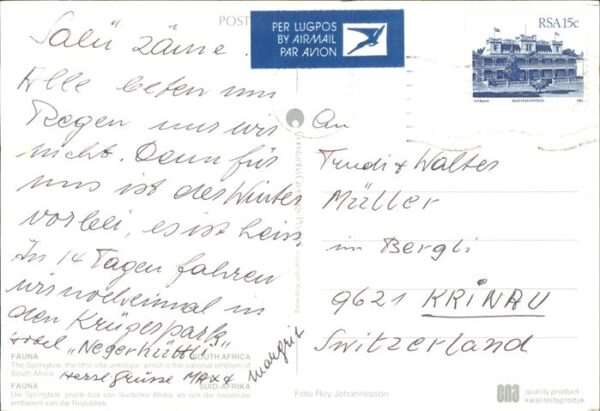 POST
PER LUGPOS
BY AIRMAIL
PAR AVION
RSA 15c
Salü zäme.
Alle beten um
Regen nur wir
nicht. Denn für
uns ist der Winter
vorbei, es ist heiss.
In 14 Tagen fahren
wir nocheinmal in
den Krügerpark
"Negerhüttli"
Herzl Grüsse Max &
Margrit
An
Trudi & Walter
Müller
im Bergli
9621 KRINAU
Switzerland
FAUNA SOUTH AFRICA
The Springbok, the lithe little antelope, which is the national emblem of
South Africa.
FAUNA SUID-AFRIKA
Die Springbok, pronk-bok van Suidelike Afrika, en ook die nasionale
embleem van die Republiek.
Foto Roy Johannesson
quality product
kwaliteitsproduk